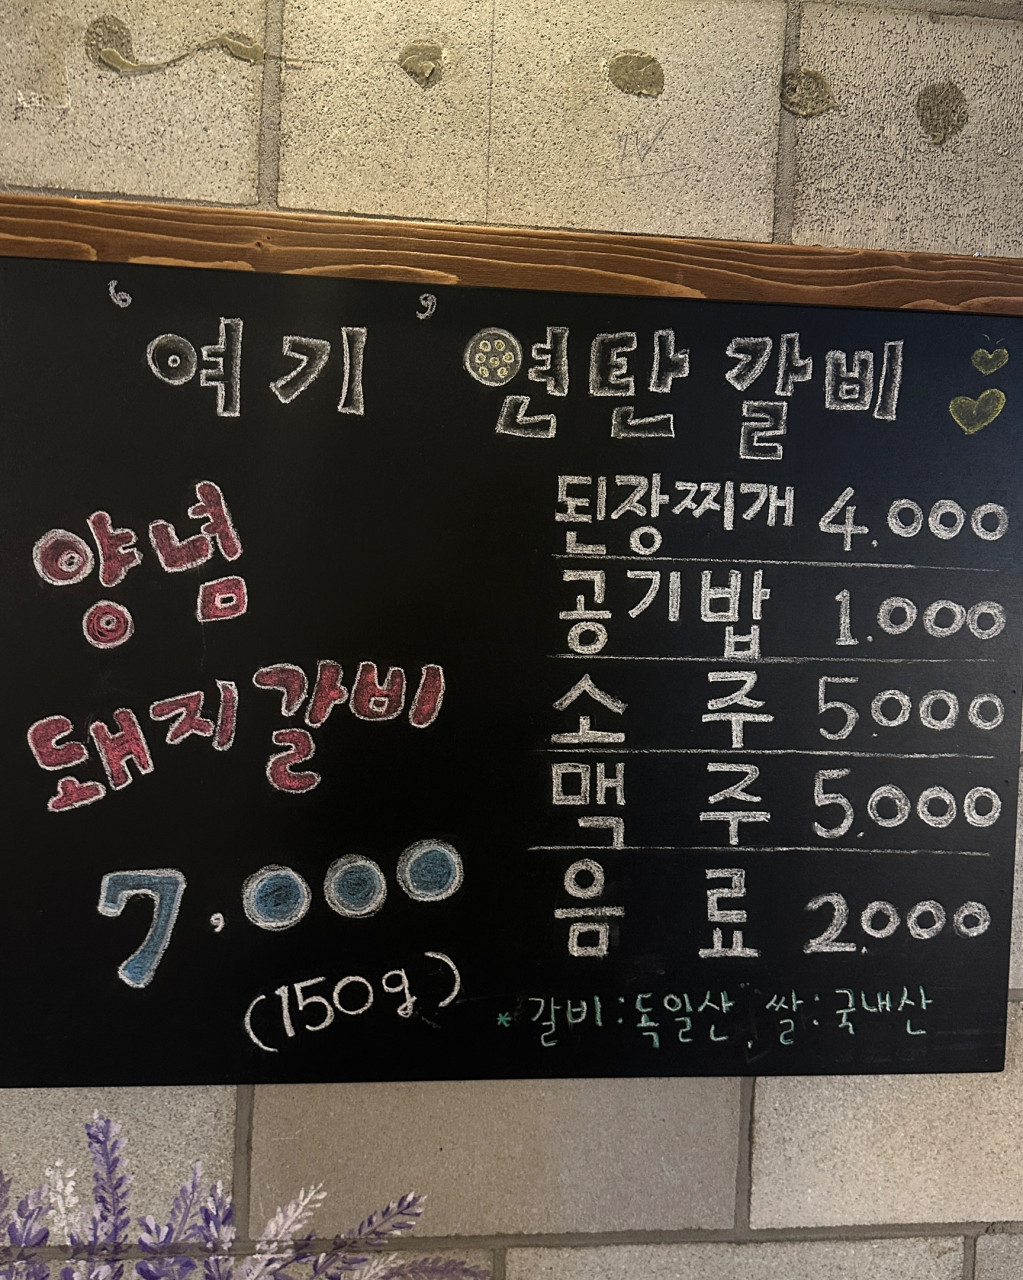 ‘여기’ 연탄갈비
양념
돼지갈비
7,000
(150g)
된장찌개 4.000
공기밥 1.000
소주 5.000
맥주 5.000
음료 2.000
* 갈비:독일산, 쌀:국내산